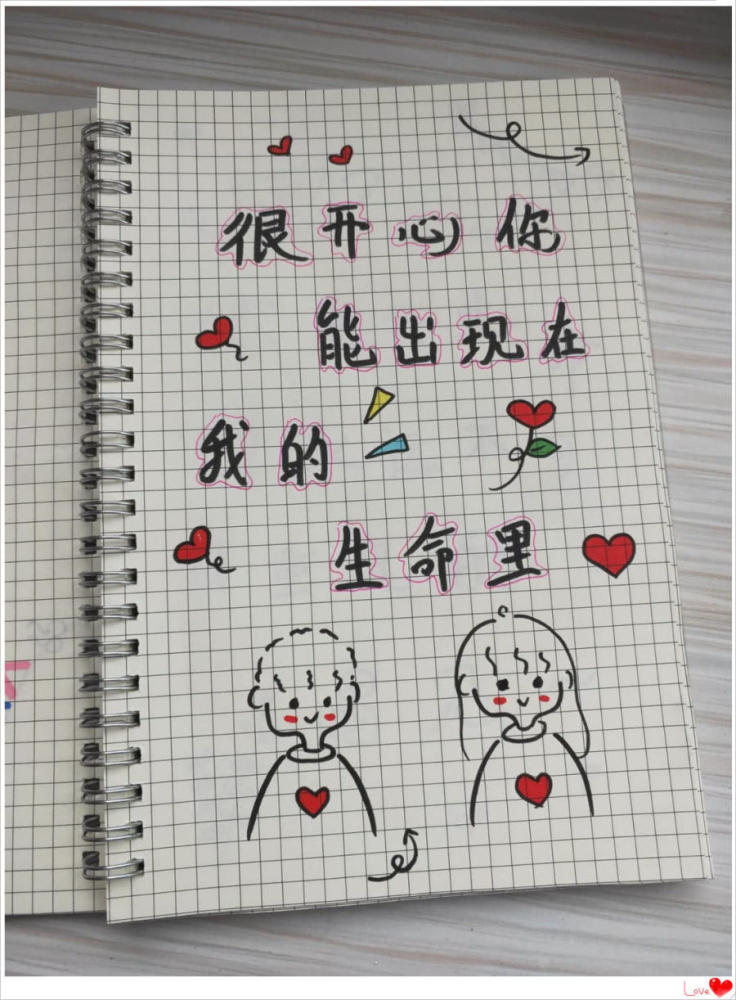 很开心你
能出现在
我的
生命里
Love